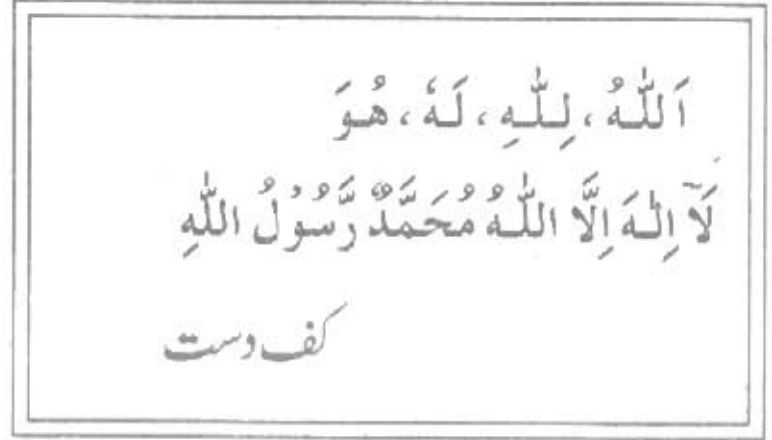 اَللّٰهُ، لِلّٰهِ، لَهٗ، هُوَ
لَآ اِلٰهَ اِلَّا اللّٰهُ مُحَمَّدٌ رَّسُوْلُ اللّٰهِ
کف دست